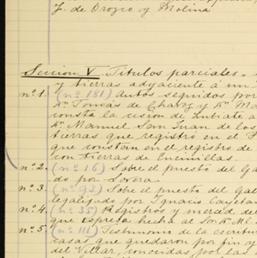 F. de Orozco y Molina
Seccion V Titulos parciales
y tierras adyacente a un
n.º 1 (n.º 181) autos seguidos por
D.n Tomás de Chavez y D.n M
consta la cesion de
D.n Manuel San Juan de los
tierras que registro en el P
que constan en el registro de
con tierras de Encinillas.
n.º 2 (n.º 16) Sobre el puesto del Ga
do por
n.º 3 (n.º 93) Sobre el puesto del Gal
legalizo por Ignacio Cayetan
n.º 4 (n.º 35) Registros y medid de
que espreta Real al Sr. D.n
n.º 5 (n.º 111) Testimonio de la escritura
casas que quedaron por fin y
del Villar, por las